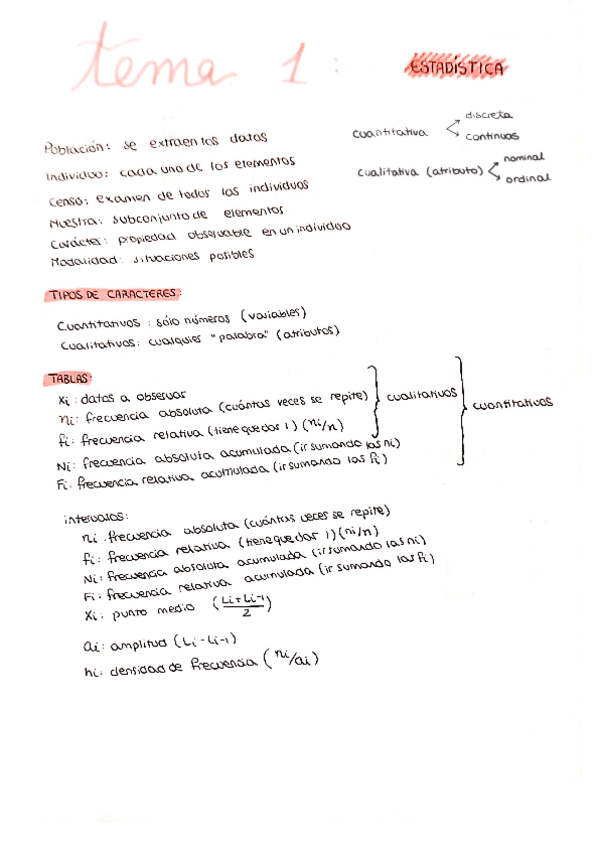 tema 1:
ESTADÍSTICA
Población: se extraen los datos
Individuo: cada uno de los elementos
Censo: examen de todos los individuos
Muestra: subconjunto de elementos
Carácter: propiedad observable en un individuo
Modalidad: situaciones posibles
cuantitativa
discreta
continuos
cualitativa (atributo)
nominal
ordinal
TIPOS DE CARACTERES:
Cuantitativos: sólo números (variables)
Cualitativos: cualquier "palabra" (atributos)
TABLAS:
Xi: datos a observar
ni: frecuencia absoluta (cuántas veces se repite)
fi: frecuencia relativa (tiene que dar 1) (ni/n)
cualitativos
cuantitativos
Ni: frecuencia absoluta acumulada (ir sumando las ni)
Fi: frecuencia relativa acumulada (ir sumando las fi)
intervalos:
ni: frecuencia absoluta (cuántas veces se repite)
fi: frecuencia relativa (tiene que dar 1) (ni/n)
Ni: frecuencia absoluta acumulada (ir sumando las ni)
Fi: frecuencia relativa acumulada (ir sumando las fi)
Xi: punto medio (Li+Li-1/2)
ai: amplitud (Li-Li-1)
hi: densidad de frecuencia (ni/ai)